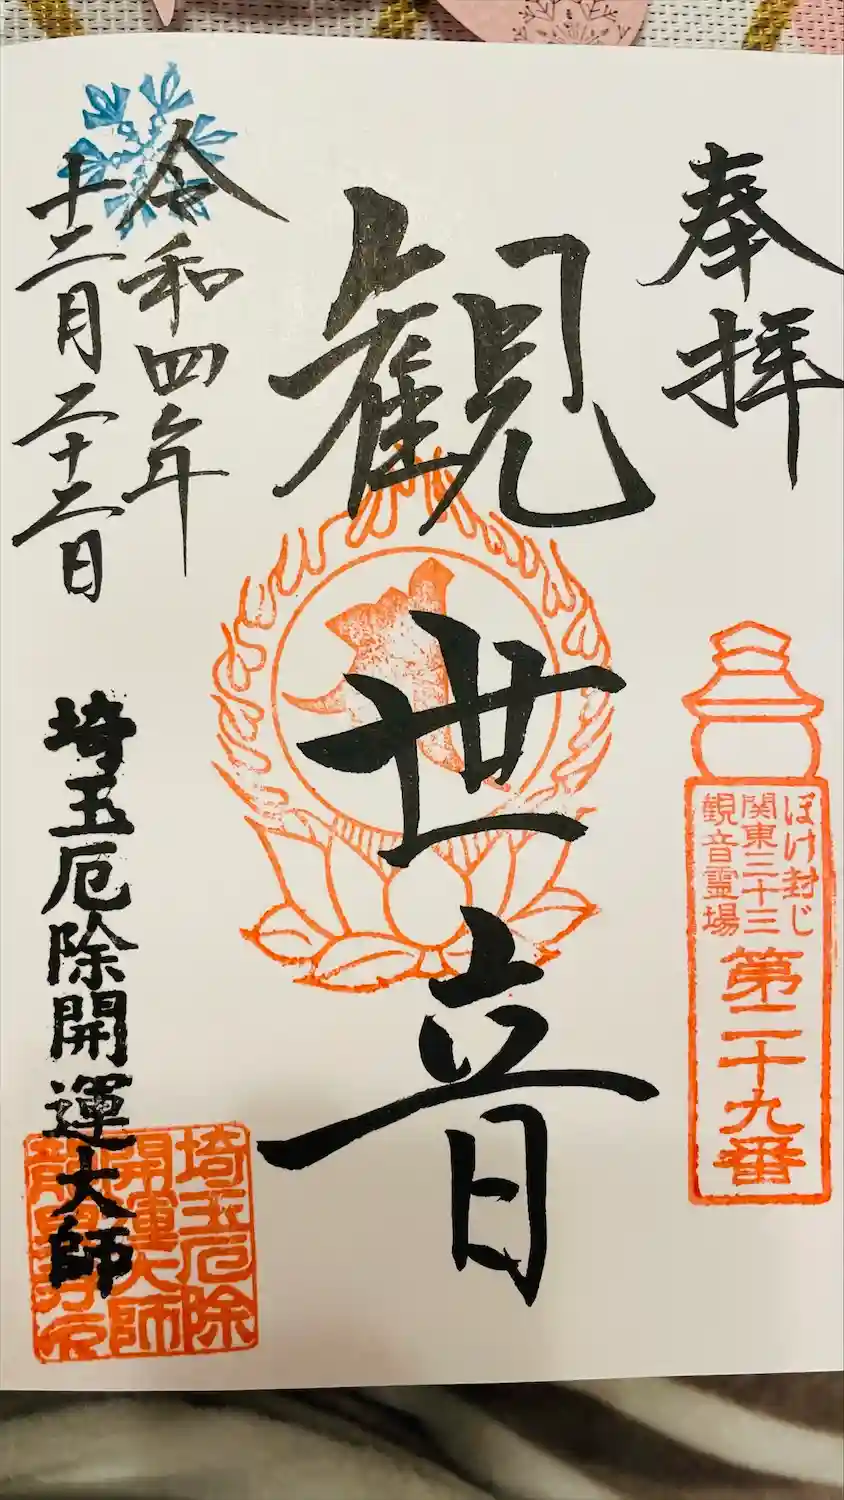 奉拝
ぼけ封じ
関東三十三
観音霊場
第二十九番
観世音
令和四年
十二月二十二日
埼玉厄除開運大師
埼玉厄除
開運大師